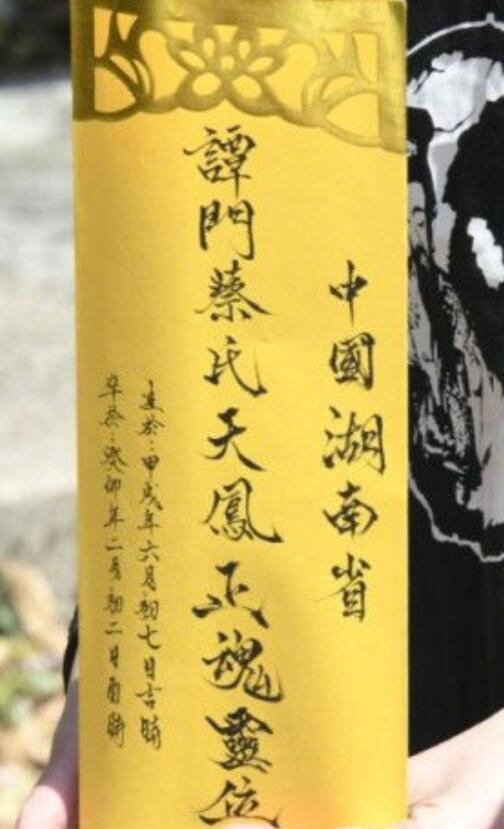 中國湖南省
譚門蔡氏天鳳正魂靈位
生於：甲戌年六月初七日吉時
卒於：癸卯年二月初二日酉時